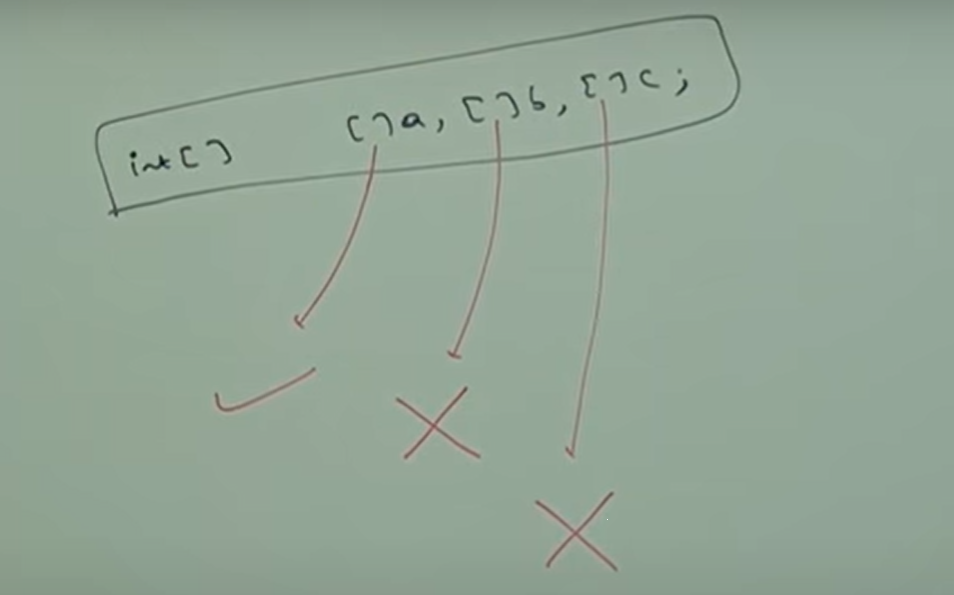 int[] []a, []b, []c;